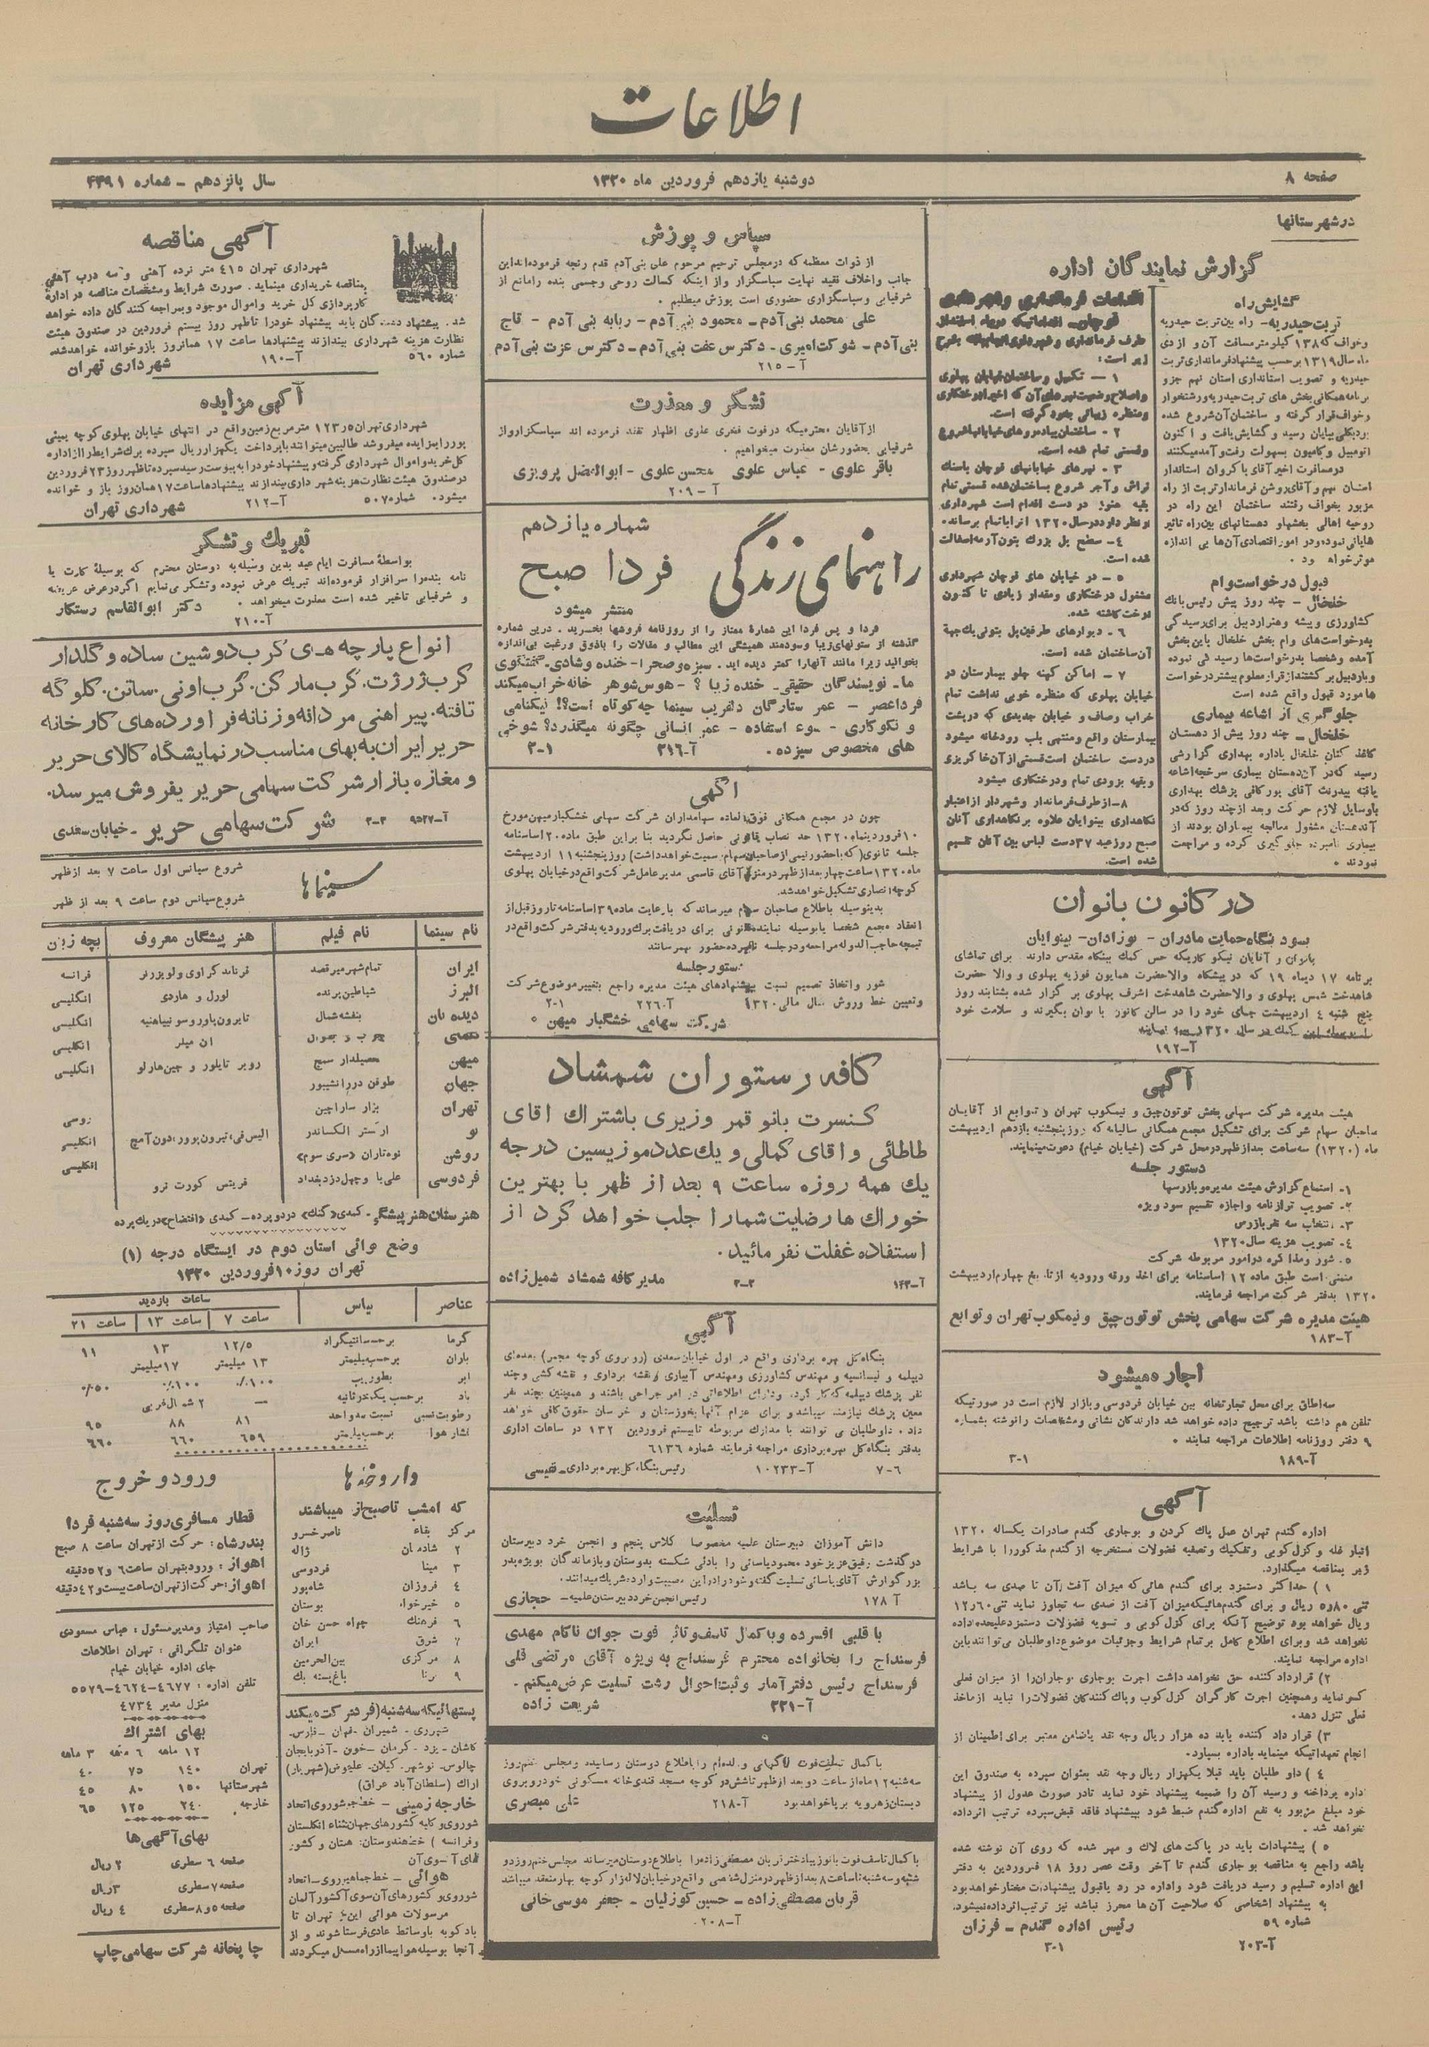 اطلاعات
صفحه ۸
دوشنبه یازدهم فروردین ماه ۱۳۲۰
سال پانزدهم - شماره ۴۴۹۱
در شهرستانها
گزارش نمایندگان اداره
گشایش راه
تربت حیدریه - راه بین تربت حیدریه
وخواف که ۱۳۸ کیلومتر مسافت آن و از دی
ماه سال ۱۳۱۹ برحسب پیشنهاد فرمانداری تربت
حیدریه و تصویب استانداری استان نهم جزو
برنامه همگانی بخش های تربت حیدریه ورشتخوار
وخواف قرار گرفته و ساختمان آن شروع شده
بود بکلی بپایان رسید و گشایش یافت و اکنون
اتومبیل و کامیون بسهولت رفت و آمد میکنند
در مسافرت اخیر آقای پاکروان استاندار
استان نهم و آقای روشن فرماندار تربت از راه
مزبور بخواف رفتند ساختمان این راه در
روحیه اهالی بخشها و دهستانهای بین راه تاثیر
شایانی نموده و در امور اقتصادی آن ها بی اندازه
موثر خواهد بود .
قبول درخواست وام
خلخال - چند روز پیش رئیس بانک
کشاورزی و پیشه و هنر اردبیل برای رسیدگی
بدرخواست های وام بخش خلخال باین بخش
آمده و شخصا بدرخواستها رسیدگی نموده
و باردبیل برگشتند از قرار معلوم بیشتر درخواست
ها مورد قبول واقع شده است
جلوگیری از اشاعه بیماری
خلخال - چند روز پیش از دهستان
کاغذ کنان خلخال باداره بهداری گزارشی
رسید که در آن دهستان بیماری سرخجه اشاعه
یافته بیدرنگ آقای پورکافی پزشک بهداری
با وسایل لازم حرکت و بعد از چند روز که در
آن دهستان مشغول معالجه بیماران بودند از
بیماری نامبرده جلوگیری کرده و مراجعت
نمودند .
اقدامات فرمانداری و شهرداری
قوچان - اقداماتیکه
طرف فرمانداری و شهرداری
زیر است :
۱ - تکمیل و ساختمان خیابان پهلوی
و اصلاح وضعیت نهرهای آن که اخیرا درختکاری
و منظره زیبائی بخود گرفته است .
۲ - ساختمان پیاده روهای خیابانها شروع
و قسمتی تمام شده است .
۳ - نهرهای خیابانهای قوچان با سنگ
تراش و آجر شروع بساختمان شده قسمتی تمام
بقیه هنوز در دست اقدام است شهرداری
در نظر دارد در سال ۱۳۲۰ آنرا باتمام برساند .
۴ - سطح پل بزرگ بتون آرمه اسفالت
شده است .
۵ - در خیابان های قوچان شهرداری
مشغول درختکاری و مقدار زیادی تا کنون
درخت کاشته شده .
۶ - دیوارهای طرفین پل بتونی یک جهة
آن ساختمان شده است .
۷ - اماکن کهنه جلو بیمارستان در
خیابان پهلوی که منظره خوبی نداشت تمام
خراب و صاف و خیابان جدیدی که در پشت
بیمارستان واقع و منتهی بلب رودخانه میشود
در دست ساختمان است قسمتی از آن خاکریزی
و بقیه بزودی تمام و درختکاری میشود
۸ - از طرف فرماندار و شهردار از اعتبار
نگاهداری بینوایان علاوه بر نگاهداری آنان
صبح روز عید ۳۷ دست لباس بین آنان تقسیم
شده است .
در کانون بانوان
بسود بنگاه حمایت مادران - نوزادان - بینوایان
بانوان و آقایان نیکوکاریکه حس کمک ببنگاه مقدس دارند برای تماشای
برنامه ۱۷ دیماه ۱۹ که در پیشگاه والاحضرت همایون فوزیه پهلوی و والا حضرت
شاهدخت شمس پهلوی و والاحضرت شاهدخت اشرف پهلوی برگزار شده بشتابند روز
پنج شنبه ۴ اردیبهشت جای خود را در سالن کانون بانوان بگیرند و سلامت خود
آ-۱۹۲
آگهی
هیئت مدیره شرکت سهامی پخش توتون چپق و تیمکوب تهران و توابع از آقایان
صاحبان سهام شرکت برای تشکیل مجمع همگانی سالیانه که روز پنجشنبه یازدهم اردیبهشت
ماه (۱۳۲۰) سه ساعت بعد از ظهر در محل شرکت (خیابان خیام) دعوت مینمایند.
دستور جلسه
۱- استماع گزارش هیئت مدیره و بازرسها
۲- تصویب ترازنامه و اجازه تقسیم سود ویژه
۳- انتخاب سه نفر بازرس
۴- تصویب هزینه سال ۱۳۲۰
۵- شور و مذاکره در امور مربوطه شرکت
متمنی است طبق ماده ۱۲ اساسنامه برای اخذ ورقه ورودیه از تاریخ چهارم اردیبهشت
۱۳۲۰ بدفتر شرکت مراجعه فرمایند.
هیئت مدیره شرکت سهامی پخش توتون چپق و تیمکوب تهران و توابع
آ-۱۸۳
اجاره میشود
سه اطاق برای محل تجارتخانه بین خیابان فردوسی و بازار لازم است در صورتیکه
تلفن هم داشته باشد ترجیح داده خواهد شد دارندگان نشانی و مشخصات را نوشته بشماره
۹ دفتر روزنامه اطلاعات مراجعه نمایند .
آ-۱۸۹
۳-۱
آگهی
اداره گندم تهران عمل پاک کردن و بوجاری گندم صادرات یکساله ۱۳۲۰
انبار غله و کزل کوبی و تفکیک و تصفیه فضولات مستخرجه از گندم مذکور را با شرایط
زیر بمناقصه میگذارد.
۱ ) حداکثر دستمزد برای گندم هائی که میزان آفت آن تا صدی سه باشد
تنی ۵٫۸۰ ریال و برای گندم هائیکه میزان آفت از صدی سه تجاوز نماید تنی ۱۲٫۶۰
ریال خواهد بود توضیح آنکه برای کزل کوبی و تسویه فضولات دستمزد علیحده داده
نخواهد شد و برای اطلاع کامل بر تمام شرایط و جزئیات موضوع داوطلبان می توانند باین
اداره مراجعه نمایند.
۲) قرارداد کننده حق نخواهد داشت اجرت بوجاری بوجاران را از میزان فعلی
کسر نماید و همچنین اجرت کارگران کزل کوب و پاک کنندگان فضولات را نباید از ماخذ
فعلی تنزل دهد.
۳) قرارداد کننده باید ده هزار ریال وجه نقد یا ضامن معتبر برای اطمینان از
انجام تعهداتیکه مینماید باداره بسپارد.
۴ ) داوطلبان باید قبلا یکهزار ریال وجه نقد بعنوان سپرده به صندوق این
اداره پرداخته و رسید آن را ضمیمه پیشنهاد خود نماید تا در صورت عدول از پیشنهاد
خود مبلغ مزبور به نفع اداره گندم ضبط شود بپیشنهاد فاقد قبض سپرده ترتیب اثر داده
نخواهد شد .
۵ ) پیشنهادات باید در پاکت های لاک و مهر شده که روی آن نوشته شده
باشد راجع به مناقصه بوجاری گندم تا آخر وقت عصر روز ۱۸ فروردین به دفتر
این اداره تسلیم و رسید دریافت شود و اداره در رد یا قبول پیشنهادات مختار خواهد بود
به پیشنهاد اشخاصی که صلاحیت آن ها محرز نباشد نیز ترتیب اثر داده نمیشود.
شماره ۵۹
رئیس اداره گندم - فرزان
آ-۲۰۳
۳-۱
سپاس و پوزش
از ذوات معظمه که در مجلس ترحیم مرحوم علی بنی آدم قدم رنجه فرموده اند این
جانب و اخلاف فقید نهایت سپاسگزار و از اینکه کسالت روحی و جسمی بنده را مانع از
شرفیابی و سپاسگزاری حضوری است پوزش میطلبم .
علی محمد بنی آدم - محمود بنی آدم - ربابه بنی آدم - تاج
بنی آدم - شوکت امیری - دکترس عفت بنی آدم - دکترس عزت بنی آدم
آ-۲۱۵
تشکر و معذرت
از آقایان محترمیکه در فوت فخری علوی اظهار تفقد فرموده اند سپاسگزار و از
شرفیابی بحضورشان معذرت میخواهیم .
باقر علوی - عباس علوی محسن علوی - ابوالفضل پرویزی
آ-۲۰۹
شماره یازدهم
راهنمای زندگی فردا صبح
منتشر میشود
فردا و پس فردا این شماره ممتاز را از روزنامه فروشها بخرید . در این شماره
گذشته از ستونهای زیبا و سودمند همیشگی این مطالب و مقالات را با ذوق و رغبت بی اندازه
بخوانید زیرا مانند آنها را کمتر دیده اید . سبزه و صحرا - خنده و شادی - گفتگوی
ما - نویسندگان حقیقی - خنده زیبا ؟ - هوس شوهر خانه خراب میکند
فردا عصر - عمر ستارگان دلفریب سینما چه کوتاه است ؟! نیکنامی
و نکوکاری - سوء استفاده - عمر انسانی چگونه میگذرد؟ شوخی
های مخصوص سیزده .
آ-۲۱۶
۲-۱
آگهی
چون در مجمع همگانی فوق العاده سهامداران شرکت سهامی خشگبار میهن مورخ
۱۰ فروردینماه ۱۳۲۰ حد نصاب قانونی حاصل نگردید بنابراین طبق ماده ۲۰ اساسنامه
جلسه ثانوی (که با حضور نیمی از صاحبان سهام رسمیت خواهد داشت) روز پنجشنبه ۱۱ اردیبهشت
ماه ۱۳۲۰ ساعت چهار بعد از ظهر در منزل آقای قاسمی مدیر عامل شرکت واقع در خیابان پهلوی
کوچه انصاری تشکیل خواهد شد.
بدینوسیله باطلاع صاحبان سهام میرساند که با رعایت ماده ۳۹ اساسنامه تا روز قبل از
انعقاد مجمع شخصا یا بوسیله نماینده قانونی برای دریافت برک ورودیه بدفتر شرکت واقع در
تیمچه حاجب الدوله مراجعه و در جلسه نامبرده حضور بهمرسانند
دستور جلسه
شور و اتخاذ تصمیم نسبت به پیشنهادهای هیئت مدیره راجع بتغییر موضوع شرکت
و تعیین خط و روش سال مالی ۱۳۲۰
آ-۲۲۶
۲-۱
شرکت سهامی خشگبار میهن .
کافه رستوران شمشاد
کنسرت بانو قمر وزیری باشتراک آقای
طاطائی و آقای کمالی و یک عده موزیسین درجه
یک همه روزه ساعت ۹ بعد از ظهر با بهترین
خوراک ها رضایت شما را جلب خواهد کرد از
استفاده غفلت نفرمائید.
آ-۱۴۳
۳-۲
مدیر کافه شمشاد شمیل زاده
آگهی
بنگاه کل بهره برداری واقع در اول خیابان سعدی (روبروی کوچه مجمر) بعده ای
دیپلمه و لیسانسیه و مهندس کشاورزی و مهندس آبیاری و نقشه برداری و نقشه کشی و چند
نفر پزشک دیپلمه که کار کرده و دارای اطلاعاتی در امر جراحی باشند و همچنین چند نفر
معین پزشک نیازمند میباشد و برای اعزام آنها بخوزستان و خراسان حقوق کافی خواهد
داد . داوطلبان می توانند با مدارک مربوطه تا بیستم فروردین ۱۳۲۰ در ساعات اداری
بدفتر بنگاه کل بهره برداری مراجعه فرمایند شماره ۶۱۳۶
۷-۶
آ-۱۰۲۳۳
رئیس بنگاه کل بهره برداری - نفیسی
تسلیت
دانش آموزان دبیرستان علمیه مخصوصا کلاس پنجم و انجمن خرد دبیرستان
درگذشت رفیق عزیز خود محمود یاسائی را با دلی شکسته بدوستان و بازماندگان بویژه پدر
بزرگوارش آقای یاسائی تسلیت گفته و خود را در این مصیبت وارده شریک میدانند.
آ ۱۷۸
رئیس انجمن خرد دبیرستان علمیه - حجازی
با قلبی افسرده و با کمال تاسف و تاثر فوت جوان ناکام مهدی
فرسنداج را بخانواده محترم فرسنداج به ویژه آقای مرتضی قلی
فرسنداج رئیس دفتر آمار و ثبت احوال رشت تسلیت عرض میکنم .
آ-۲۲۱
شریعت زاده
با کمال تاسف فوت ناگهانی والده ام را باطلاع دوستان رسانیده و مجلس ختم روز
سه شنبه ۱۲ ماه از ساعت دو بعد از ظهر تا شش در کوچه مسجد قندی خانه مسکونی خود روبروی
دبستان زهرویه برپا خواهد بود
آ-۲۱۸
علی مبصری
با کمال تاسف فوت بانو زیبا دختر قربان مصطفی زاده را باطلاع دوستان میرساند مجلس ختم روز دو
شنبه و سه شنبه تا ساعت ۸ بعد از ظهر در منزل شخصی واقع در خیابان لاله زار کوچه بهار منعقد میباشد
قربان مصطفی زاده - حسین کوزلیان - جعفر موسی خانی
آ-۲۰۸
آگهی مناقصه
شهرداری تهران ۴۱۵ متر نرده آهنی و سه درب آهنی
بمناقصه خریداری مینماید. صورت شرایط و مشخصات مناقصه در اداره
کارپردازی کل خرید و اموال موجود و بمراجعه کنندگان داده خواهد
شد . پیشنهاد دهندگان باید پیشنهاد خود را تا ظهر روز بیستم فروردین در صندوق هیئت
نظارت هزینه شهرداری بیندازند پیشنهادها ساعت ۱۷ همانروز باز و خوانده خواهد شد.
شماره ۵۶۰
آ-۱۹۰
شهرداری تهران
آگهی مزایده
شهرداری تهران ۱۲۳٫۵ متر مربع زمین واقع در انتهای خیابان پهلوی کوچه بمبئی
پور را بمزایده میفروشد طالبین میتوانند با پرداخت یکهزار ریال سپرده برک شرایط را از اداره
کل خرید و اموال شهرداری گرفته و پیشنهاد خود را به پیوست رسید سپرده تا ظهر روز ۲۳ فروردین
در صندوق هیئت نظارت هزینه شهرداری بیندازند پیشنهادها ساعت ۱۷ همان روز باز و خوانده
میشود.
شماره ۵۰۷
آ-۲۱۲
شهرداری تهران
تبریک و تشکر
بواسطه مسافرت ایام عید بدین وسیله به دوستان محترم که بوسیله کارت یا
نامه بنده را سرافراز فرموده اند تبریک عرض نموده و تشکر می نمایم اگر در عرض عریضه
و شرفیابی تاخیر شده است معذرت میخواهد .
دکتر ابوالقاسم رستکار
آ-۲۱۰
انواع پارچه های کرب دوشین ساده و گلدار
کرب ژرژت. کرب مارکن. کرب اونی. ساتن. کلوکه
تافته. پیراهنی مردانه و زنانه فراورده های کارخانه
حریر ایران به بهای مناسب در نمایشگاه کالای حریر
و مغازه بازار شرکت سهامی حریر بفروش میرسد.
آ-۹۵۲۷
۳-۳
شرکت سهامی حریر - خیابان سعدی
سینماها
شروع سیانس اول ساعت ۷ بعد از ظهر
شروع سیانس دوم ساعت ۹ بعد از ظهر
نام سینما | نام فیلم | هنرپیشگان معروف | بچه زبان
ایران | تمام شهر میرقصد | فرناند گراوی و لویزرنر | فرانسه
البرز | شیاطین پرنده | لورل و هاردی | انگلیسی
دیده بان | بنفشه شمال | تایرون پاور و سونیاهنیه | انگلیسی
آن میلر | انگلیسی
میهن | تحصیلدار سمج | روبر تایلور و جین هارلو | انگلیسی
جهان | طوفان در رانشیپور
تهران | بزار ساراچین | روسی
نو | ارکستر الکساندر | الیس فی، تیرون پوور، دون آمچ | انگلیسی
روشن | نوه تارزان «سری سوم» | انگلیسی
فردوسی | علی بابا و چهل دزد بغداد | فریتس کورت نرو
هنرستان هنرپیشگی - کمدی «گنک» در دو پرده - کمدی «افتضاح» در یک پرده
وضع هوائی استان دوم در ایستگاه درجه (۱)
تهران روز ۱۰ فروردین ۱۳۲۰
عناصر | بیاس | ساعات بازدید
ساعت ۷ | ساعت ۱۳ | ساعت ۲۱
گرما | برحسب سانتیگراد | ۱۲/۵ | ۱۳ | ۱۱
باران | برحسب میلیمتر | ۱۳ میلیمتر | ۱۷ میلیمتر
ابر | بطور ریب | ۱۰۰٪ | ۱۰۰٪ | ۵۰٪
باد | برحسب یک متر ثانیه | — | ۲ شمال غربی
رطوبت نسبی | نسبت بصد واحد | ۸۱ | ۸۸ | ۹۵
فشار هوا | برحسب میلیمتر | ۶۵۹ | ۶۶۰ | ۶۶۰
داروخانه ها
که امشب تا صبح باز میباشند
مرکز بقاء ناصرخسرو
۲ شادمان ژاله
۳ مینا فردوسی
۴ فروزان شاه پور
۵ خیرخواه بوستان
۶ فرهنگ چهار راه حسن خان
۷ شرق ایران
۸ مرکزی بین الحرمین
۹ رضا باغ پسته بک
پستهائیکه سه شنبه (فردا) حرکت میکند
شهرری - شمیران - تهران - فارس -
کاشان - یزد - کرمان - خوی - آذربایجان
چالوس - نوشهر. گیلان - علیعوض (شهریار)
اراک (سلطان آباد عراق)
خارجه زمینی - خط جلفا شوروی اتحاد
شوروی و کلیه کشورهای جهان باستثناء انگلستان
و فرانسه ) خط هندوستان: هندوستان و کشور
های آنسوی آن
هوائی - خط جماهیر وی - اتحاد
شوروی و کشورهای آن سوی آن کشور آلمان
مرسولات هوائی این خط تهران تا
بادکوبه با وسائط عادی فرستاده شده و از
آنجا بوسیله هواپیما از راه مسکو میگردند
ورود و خروج
قطار مسافری روز سه شنبه فردا
بندرشاه : حرکت از تهران ساعت ۸ صبح
اهواز : ورود بتهران ساعت ۶ و ۵۲ دقیقه
اهواز : حرکت از تهران ساعت بیست و ۴۲ دقیقه
صاحب امتیاز و مدیر مسئول : عباس مسعودی
عنوان تلگرافی : تهران اطلاعات
جای اداره خیابان خیام
تلفن اداره : ۴۶۷۷-۴۶۲۴-۵۵۷۹
منزل مدیر ۴۷۳۴
بهای اشتراک
۱۲ ماهه ۶ ماهه ۳ ماهه
تهران ۱۴۰ ۷۵ ۴۰
شهرستانها ۱۵۰ ۸۰ ۴۵
خارجه ۲۴۰ ۱۲۵ ۶۵
بهای آگهی ها
صفحه ۶ سطری ۲ ریال
صفحه ۷ سطری ۳ ریال
صفحه ۵ و ۸ سطری ۴ ریال
چاپخانه شرکت سهامی چاپ